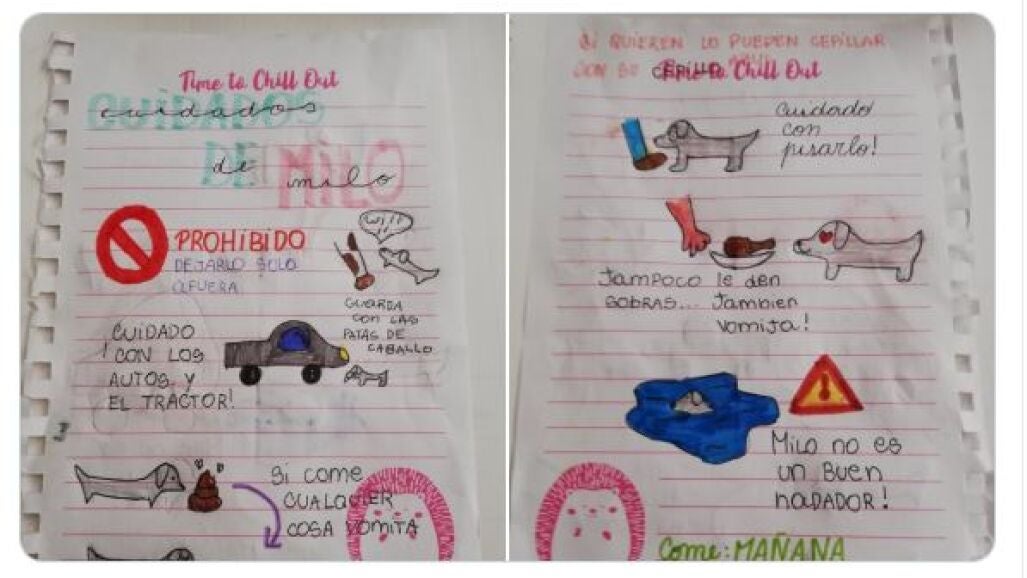 Time to Chill Out
CUIDADOS
cuidados
DE MILO
de milo
PROHIBIDO
DEJARLO SOLO
AFUERA
WiJJ
GUARDA
CON LAS
PATAS DE
CABALLO
CUIDADO
! CON LOS
AUTOS Y
EL TRACTOR!
Si come
CUALQUIER
COSA VOMITA
Si QUIEREN LO PUEDEN CEPILLAR
CON SU CEPILLO
Time to Chill Out
Cuidado
con
pisarlo!
TAMPOCO le den
SOBRAS... También
Vomita!
Milo no es
un Buen
nadador!
Come: MAÑANA